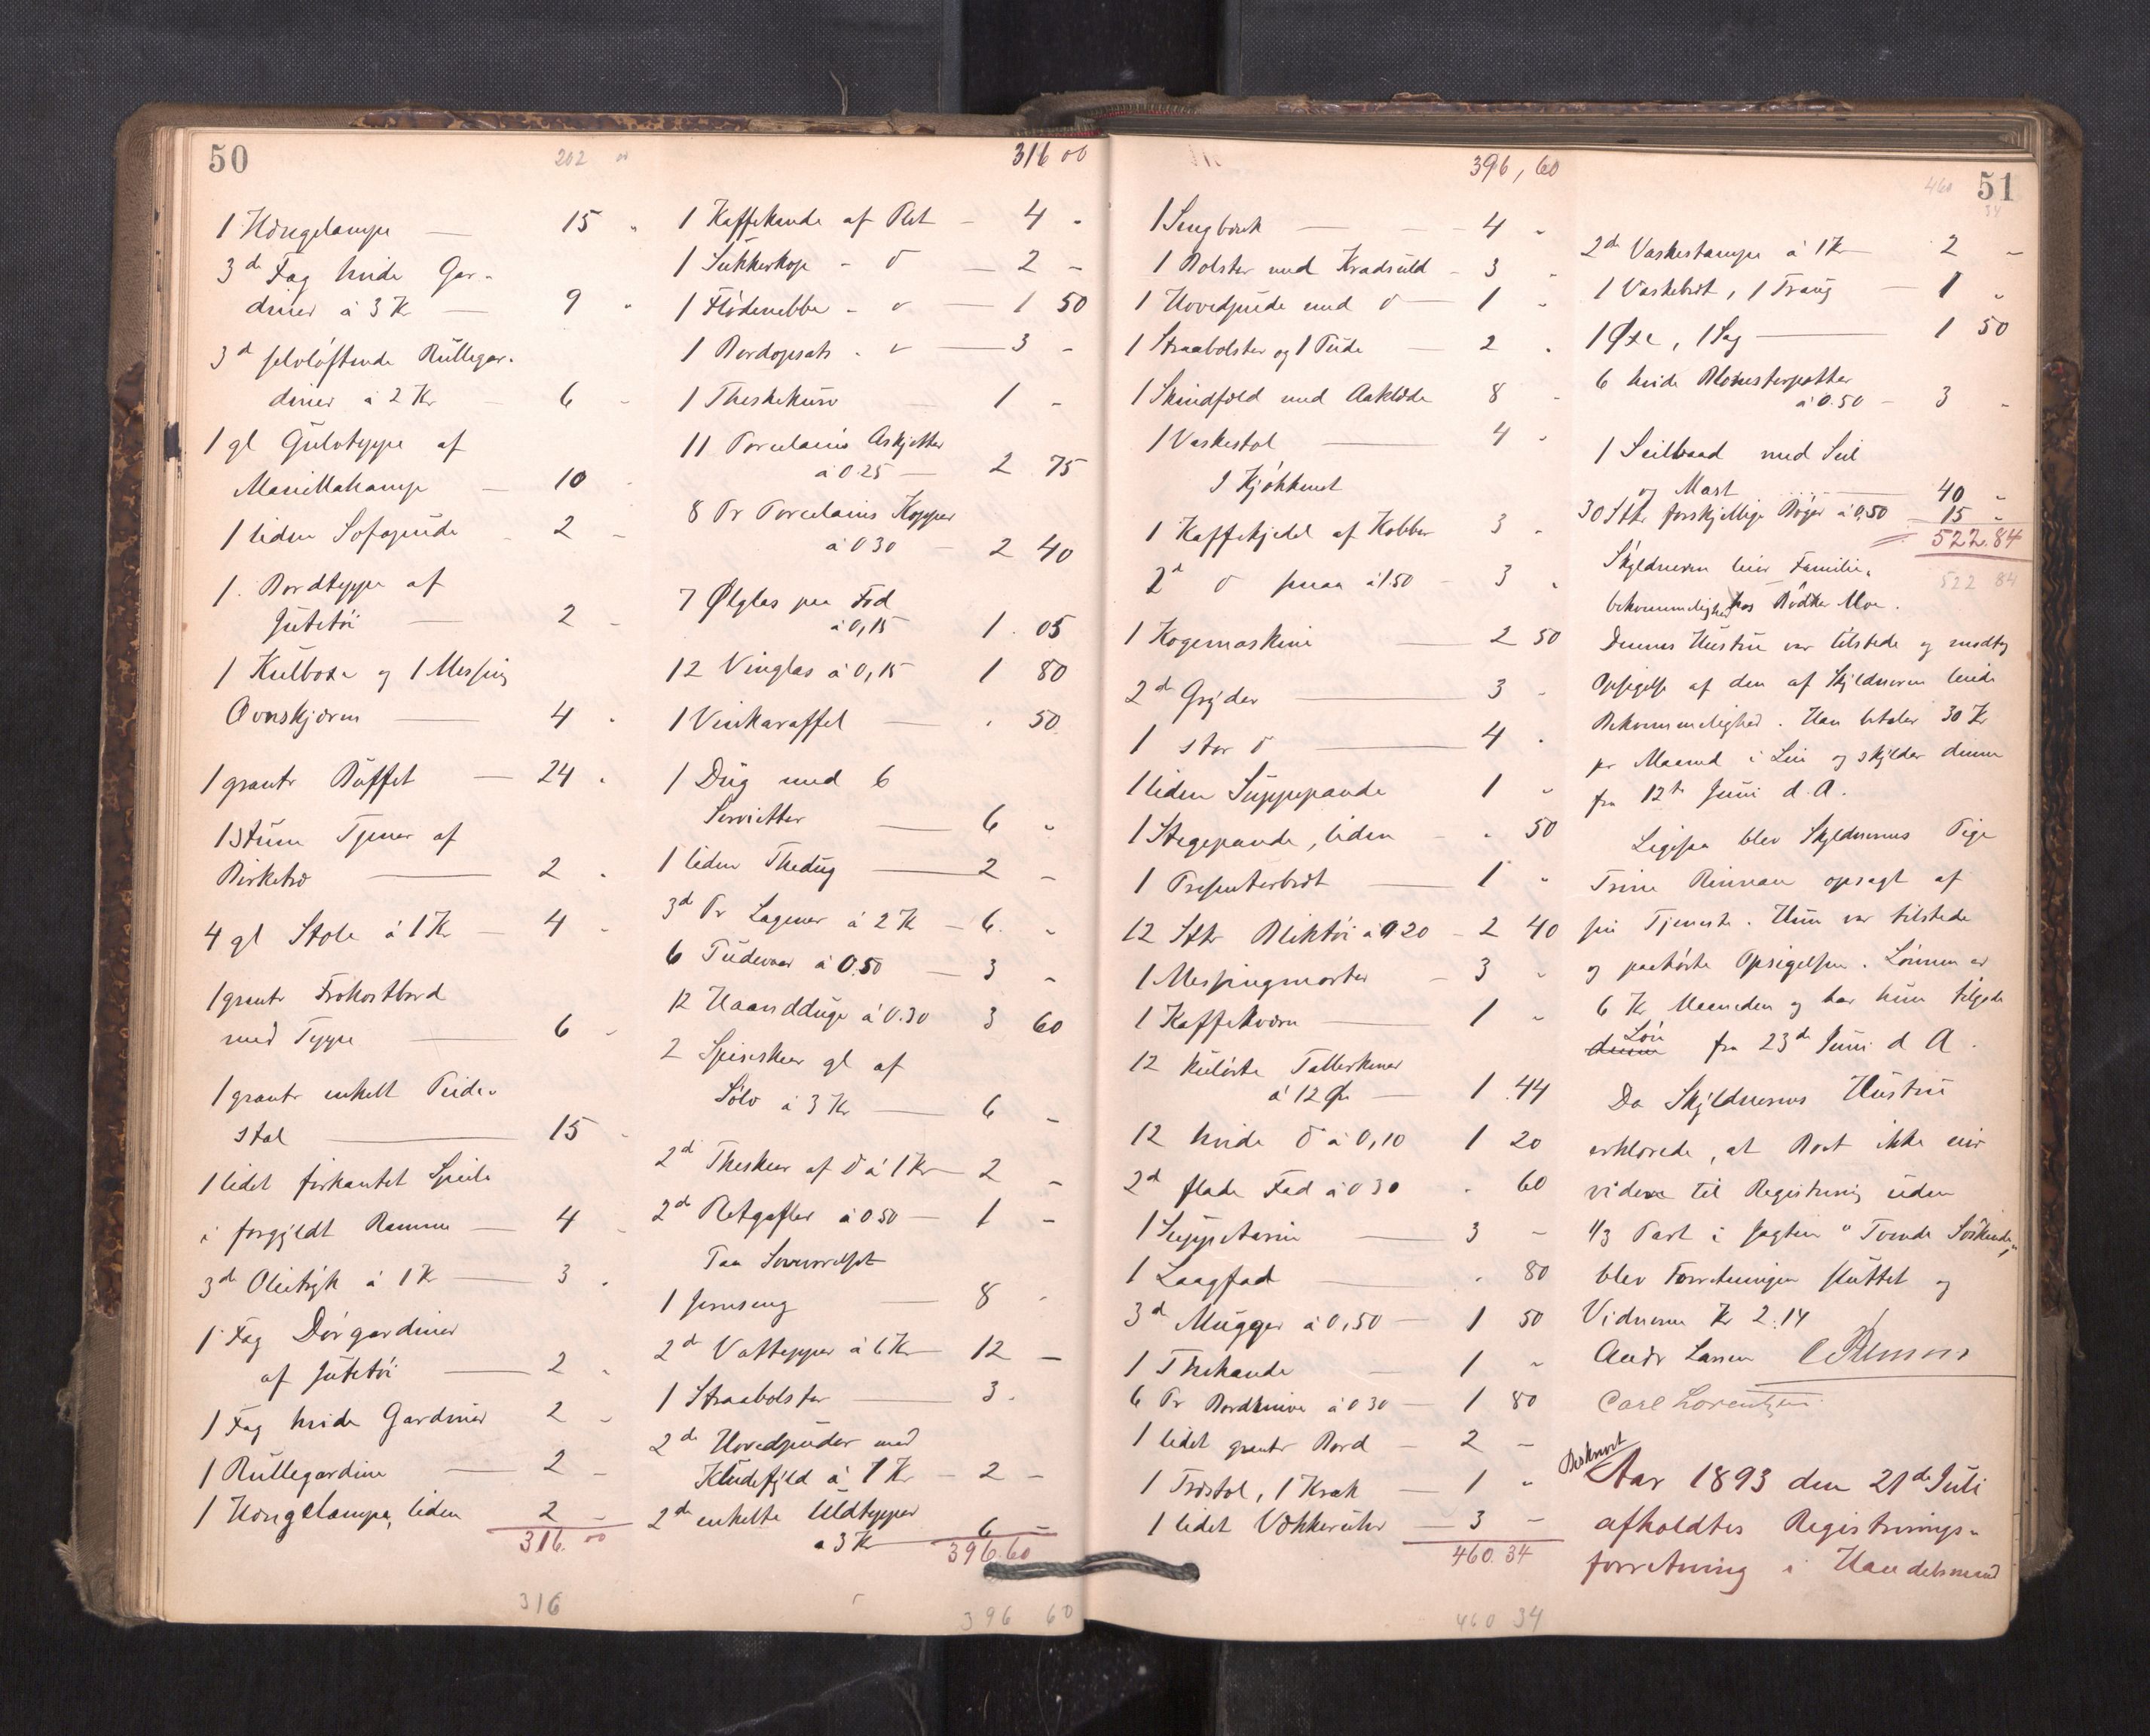 50
202 00
1 Hængelampe — 15 "
3de Fag hvide Gar-
diner à 3 Kr — 9 "
3de selvløftende Rullegar-
diner à 2 Kr — 6 -
1 gl Gulvteppe af
Manillahamp — 10 -
1 liden Sofapude - 2 -
1. Bordteppe af
Jutetøi — 2 -
1 Kulboxe og 1 Messing
Ovnskjærm — 4 "
1 grantr Buffet — 24 "
1 Stum Tjener af
Birketræ — 2 "
4 gl Stole à 1 Kr — 4 -
1 grantr Frokostbord
med Teppe — 6 -
1 grantr enkelt Pidee-
stal — 15 -
1 lidet firkantet Speile
i forgyldt Ramme — 4 -
3de Olietryk à 1 Kr — 3 "
1 Fag Dørgardiner
af Jutetøi — 2 "
1 Fag hvide Gardiner 2 -
1 Rullegardine — 2 -
1 Hængelampe, liden 2 -
316. 00
316
316 00
1 Kaffekande af Plet — 4 -
1 Sukkerkop - d° — 2 -
1 Flødenebbe - " — 1 50
1 Bordopsats . " — 3 -
1 Theskekurv — 1 -
11 Porcelains Askjetter
à 0.25 — 2 75
8 Pr Porcelains Kopper
à 0 30 — 2 40
7 Ølglas paa Fod
à 0,15 1 . 05
12 Vinglas à 0,15 1 80
1 Vinkaraffel — . 50
1 Dug med 6
Servietter — 6 "
1 liden Thedug — 2 -
3de Pr Lagener à 2 Kr — 6. "
6 Pudevaar à 0.50 — 3 -
12 Haandduge à 0.30 3 60
2 Spiseskeer gl af
Sølv à 3 Kr — 6 -
2de Theskeer af d° à 1 Kr — 2 -
2de Pletgafler à 0 50 — 1 -
Paa Soveværelset
1 Jernseng — 8 -
2de Vatteppper à 6 Kr — 12 —
1 Straabolster — 3.
2de Hovedpuder med
Kludefyld à 1 Kr — 2 -
2de enkelte Uldtepper
à 3 Kr — 6 -
396.60
396 60
396,60
1 Sengbænk — 4 "
1 Bolster med Kraduld - 3 "
1 Hovedpude med d° — 1 "
1 Straabolster og 1 Pude — 2 "
1 Skindfæld med Aaklæde 8 "
1 Vaskestol — 4 "
I Kjøkkenet
1 Kaffekjedel af Kobber 3 "
2de d° smaa à 1.50 - 3 "
1 Kogemaskine — 2 50
2de Gryder — 3 -
1 stor d° — 4 -
1 liden Suppepande 1 "
1 Stegepande, liden - " 50
1 Præsenterbræt — 1 "
12 Stkr Bliktøi à 0 20 - 2 40
1 Messingmorter - 3 "
1 Kaffekværn — 1 "
12 kulørte Tallerkener
à 12 Øre — 1 .44
12 hvide d° à 0,10 1 20
2de flade Fad à 0 30 . 60
1 Suppeterrin — 3 -
1 Laagfad — . 80
3de Mugger à 0,50 — 1 50
1 Thekande — 1 "
6 Pr Bordknive à 0 30 — 1 80
1 lidet grantr Bord — 2 -
1 Træstol, 1 Krak — 1 "
1 lidet Vækkeruhr — 3 -
460. 34
460 34
460 34
51
2de Vaskestamper à 1 Kr — 2 -
1 Vaskebræt, 1 Traug — 1 "
1 Øxe, 1 Sag — 1 50
6 hvide Blomsterpotter
à 0.50 — 3 -
1 Seilbaad med Seil
og Mast — 40 "
30 Stkr forskjellige Bøger à 0,50 — 15 "
522.84
522 84
Skyldneren leier Familie-
bekvemmelighed hos Bødker Moe.
Dennes Hustru var tilstede og modtog
Opsigelse af den af Skyldneren leiede
Bekvemmelighed. Han betaler 30 Kr
pr Maaned i Leie og skylder denne
fra 12te Juni d. A.
Ligesaa blev Skyldnerens Pige
Trine Rinnan opsagt af
sin Tjeneste. Hun var tilstede
og paahørte Opsigelsen. Lønnen er
6 Kr Maaneden og har hun tilgode
Løn
denne fra 23de Juni d A.
Da Skyldnerens Hustru
erklærede, at Boet ikke eier
videre til Registrering uden
1/3 Part i Jagten "Tvende Søskende"
blev Forretningen sluttet og
Vidnerne Kr 2.14
Andr Larsen
Carl Lorentzen
Beskrevet
Aar 1893 den 21de Juli
afholdtes Registrerings-
forretning i Handelsmand